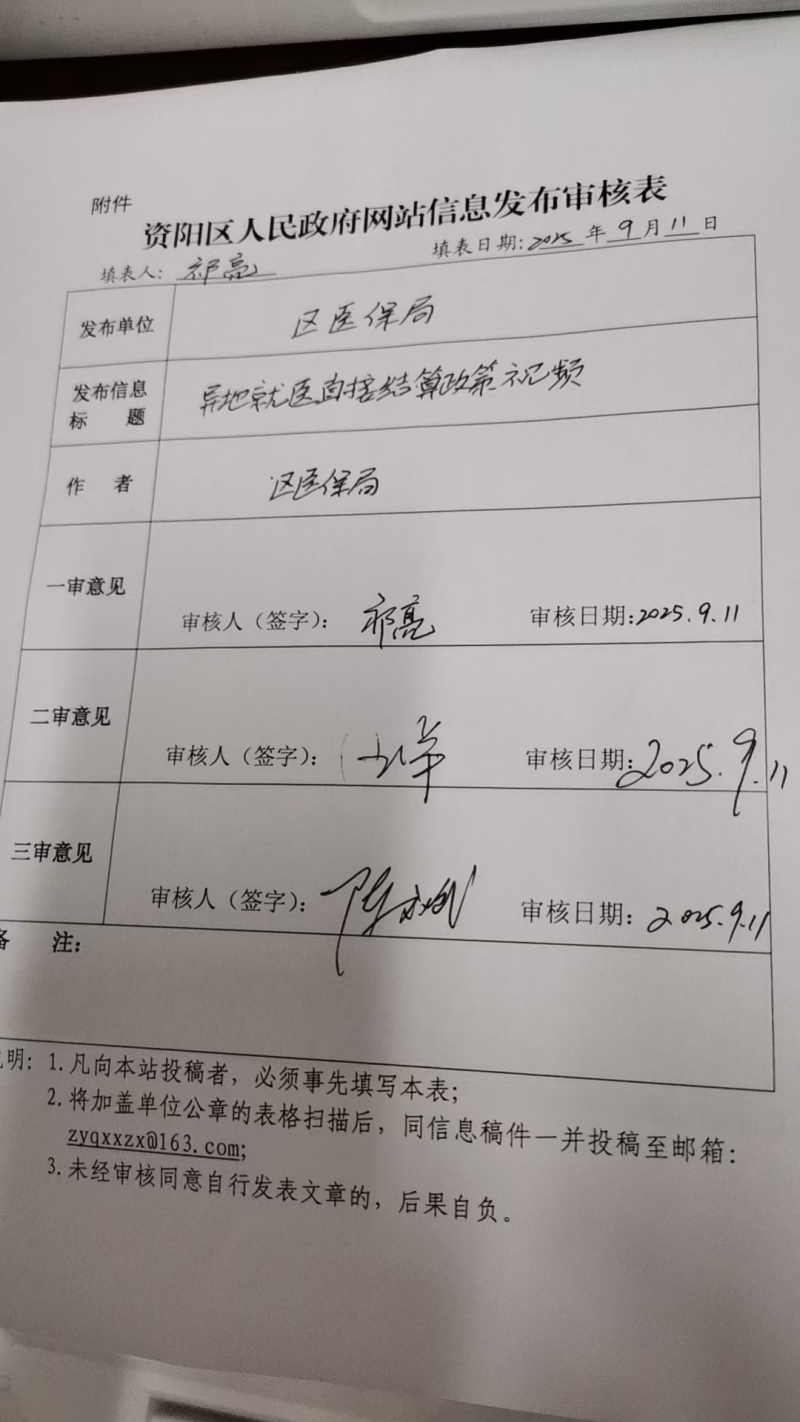 附件
资阳区人民政府网站信息发布审核表
填表人：祁亮 填表日期：2025年9月11日
发布单位 区医保局
发布信息标题 异地就医直接结算政策视频
作者 区医保局
一审意见 审核人（签字）：祁亮 审核日期：2025.9.11
二审意见 审核人（签字）： 审核日期：2025.9.11
三审意见 审核人（签字）： 审核日期：2025.9.11
备注：
说明：1.凡向本站投稿者，必须事先填写本表；
2.将加盖单位公章的表格扫描后，同信息稿件一并投稿至邮箱：
zyqxxzx@163.com;
3.未经审核同意自行发表文章的，后果自负。